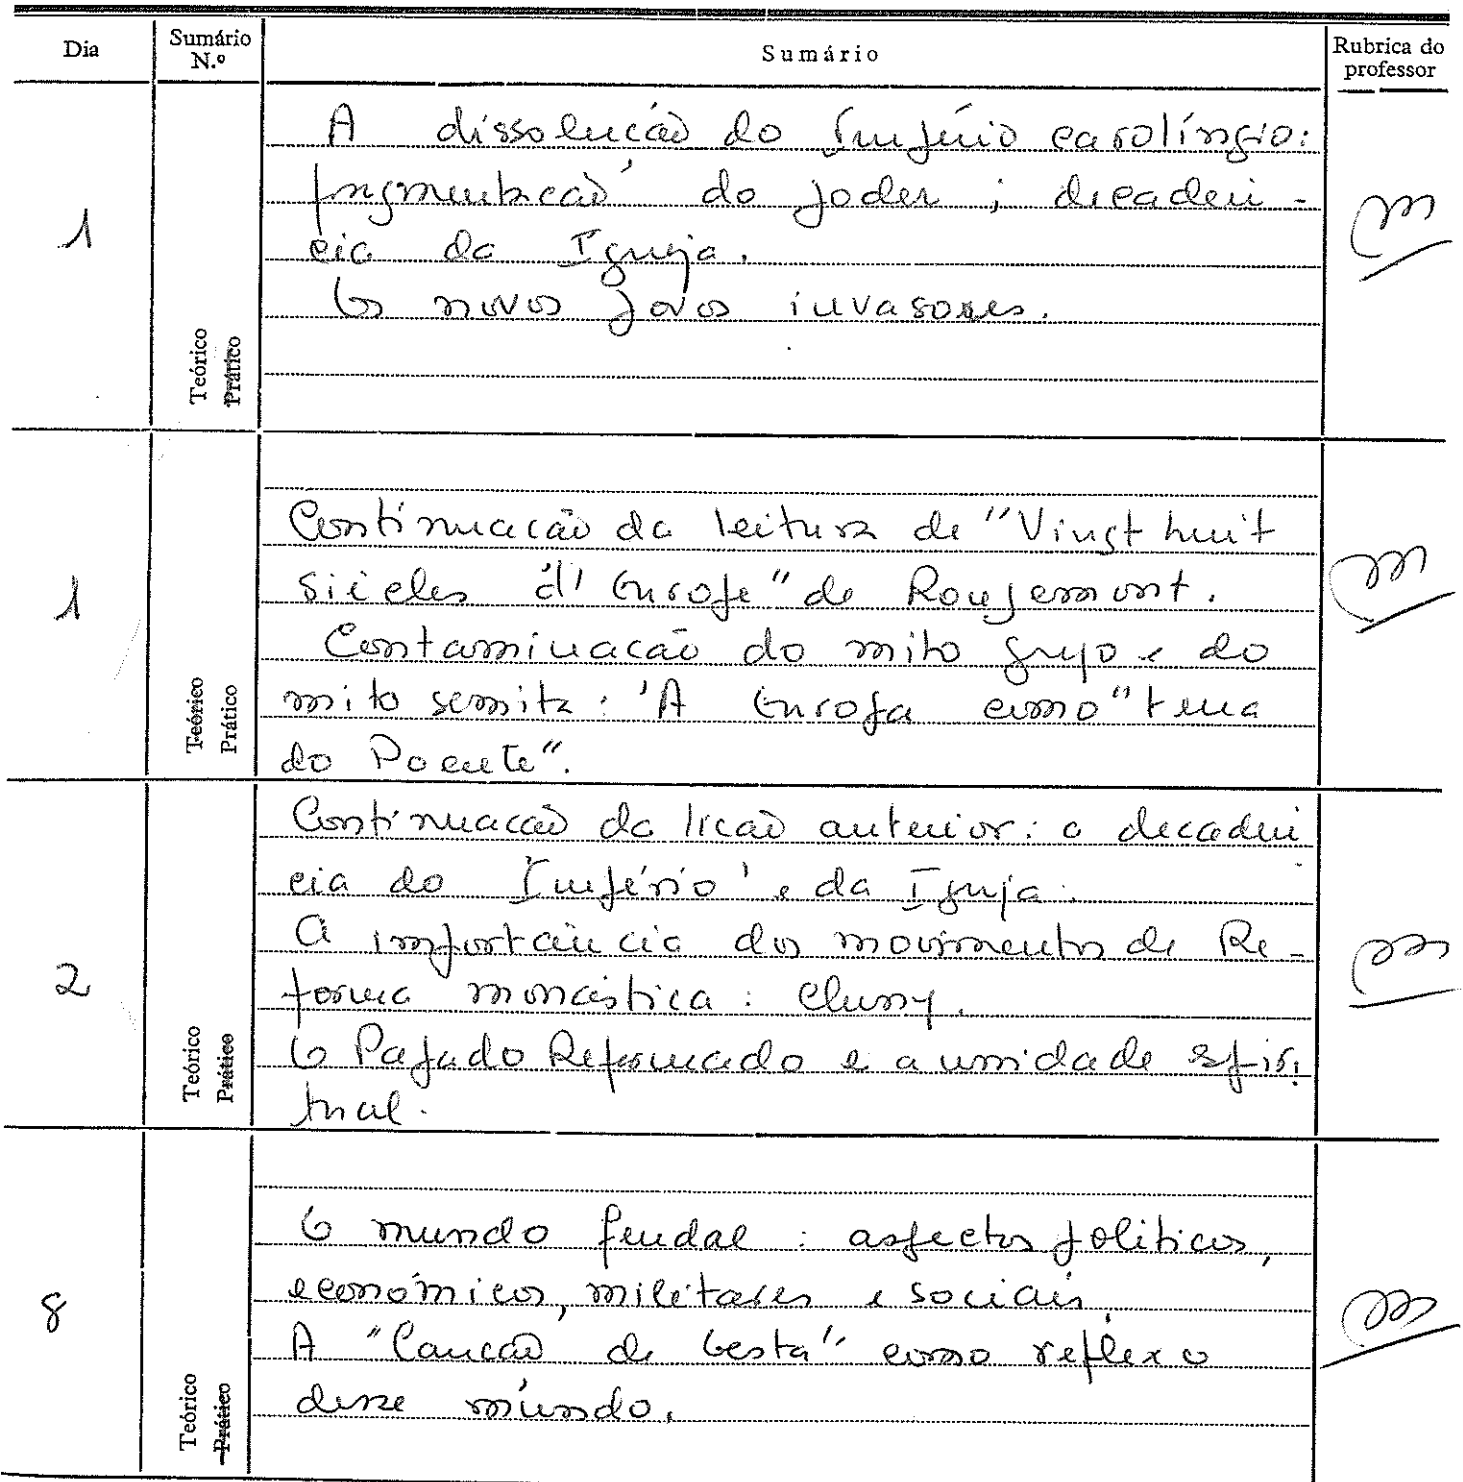 Dia Sumário N.º Sumário Rubrica do professor
1
Teórico Prático
A dissolução do Império carolíngio:
fragmentação do poder; decadên-
cia da Igreja.
Os novos povos invasores.
1
Teórico Prático
Continuação da leitura de "Vingt huit
siècles d'Europe" de Rougemont.
Contaminação do mito grego e do
mito semita: A Europa como "terra
do Poente".
2
Teórico Prático
Continuação da lição anterior: a decadên
cia do Império e da Igreja.
A importância dos movimentos de Re-
forma monástica: Cluny.
O Papado Reformado e a unidade espiri
tual.
8
Teórico Prático
O mundo feudal: aspectos políticos,
económicos, militares e sociais.
A "Canção de Gesta" como reflexo
desse mundo.